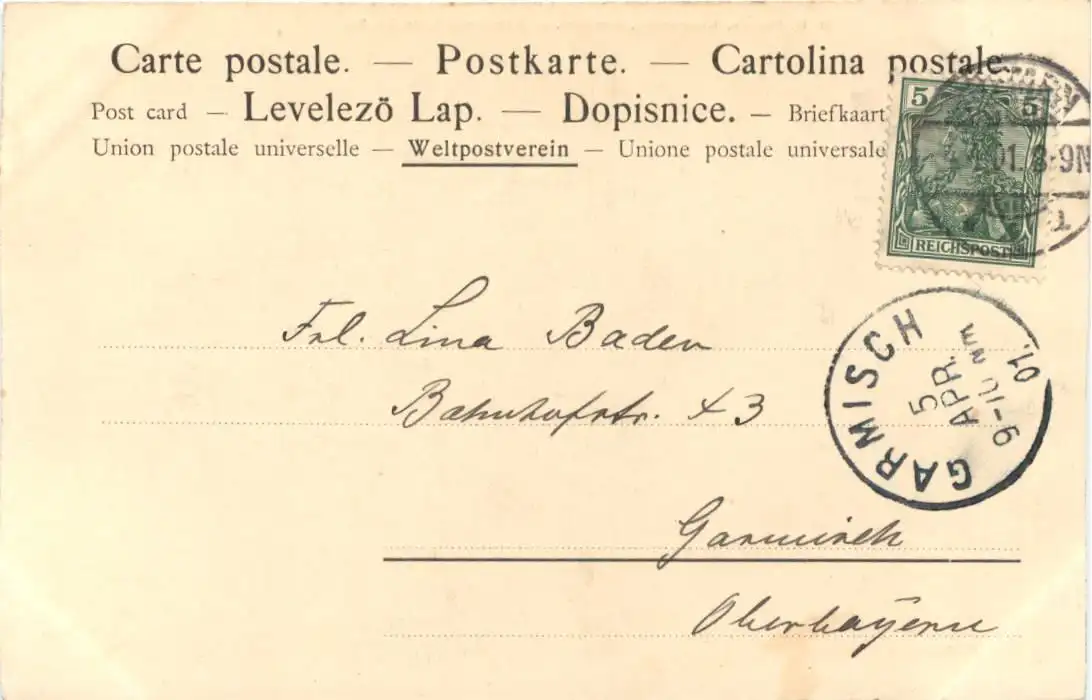 Carte postale. — Postkarte. — Cartolina postale.
Post card — Levelezö Lap. — Dopisnice. — Briefkaart
Union postale universelle — Weltpostverein — Unione postale universale
5 5
01. 8-9N
1
REICHSPOST
GARMISCH
5
APR.
9-10
01.
Frl. Lina Baden
Bahnhofstr. 43
Garmisch
Oberbayern